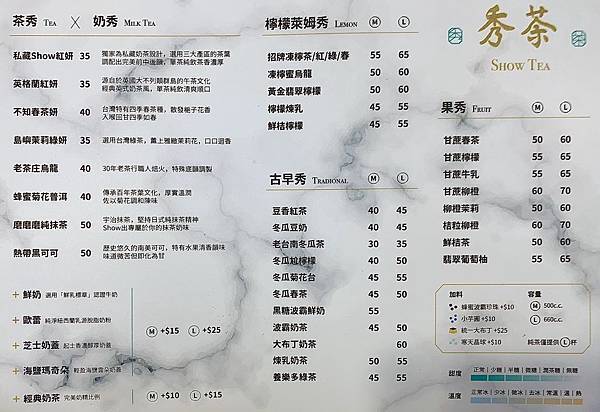 茶秀 TEA X 奶秀 MILK TEA
私藏Show紅妍 35 獨家為私藏奶茶設計,選用三大產區的茶葉
調配出完美前中後韻,單茶純飲茶香濃厚
英格蘭紅妍 35 源自於英國大不列顛群島的午茶文化
經典英式奶茶風,單茶純飲清爽順口
不知春茶妍 40 台灣特有四季春茶種,散發梔子花香
入喉回甘四季如春
島嶼茉莉綠妍 35 選用台灣綠茶,薰上雅緻茉莉花,口口迴香
老茶庄烏龍 40 30年老茶行職人焙火,特殊底韻調製
蜂蜜菊花普洱 40 傳承百年茶葉文化,厚實溫潤
佐以菊花調和陳味
磨磨磨純抹茶 50 宇治抹茶,堅持日式純抹茶精神
Show出專屬於你的抹茶奶味
熱帶黑可可 50 歷史悠久的南美可可,特有水果清香韻味
味道微苦但即化為甘
+ 鮮奶 選用「鮮乳標章」認證牛奶
+ 歐蕾 純淨紐西蘭乳源脫脂奶粉
+ 芝士奶蓋 起士香濃醇厚奶蓋
M +$15 L +$25
+ 海鹽瑪奇朵 輕盈海鹽雲朵奶蓋
+ 經典奶茶 完美奶精比例 M +$10 L +$15
檸檬萊姆秀 LEMON M L
招牌凍檸茶/紅/綠/春 55 65
凍檸蜜烏龍 50 60
黃金翡翠檸檬 50 60
檸檬煉乳 45 55
鮮桔檸檬 45 55
古早秀 TRADIONAL M L
豆香紅茶 40 45
冬瓜豆奶 40 45
老台南冬瓜茶 30 35
冬瓜尬檸檬 40 50
冬瓜菊花台 45 55
冬瓜春茶 45 50
黑糖波霸鮮奶 55
波霸奶茶 45 50
大布丁奶茶 60
煉乳奶茶 50 55
養樂多綠茶 45 55
秀茶
SHOW TEA
果秀 FRUIT M L
甘蔗春茶 50 60
甘蔗檸檬 55 65
甘蔗牛乳 55 65
甘蔗柳橙 60 70
柳橙茉莉 50 60
桔粒柳橙 60 70
鮮桔茶 50 60
翡翠葡萄柚 55 65
加料 容量
蜂蜜波霸珍珠 +$10 M 500c.c.
小芋圓 +$10 L 660c.c.
統一大布丁 +$25
寒天晶球 +$10 純茶僅提供 L 杯
甜度 正常 少糖 半糖 微糖 潤茶糖 無糖
溫度 正常冰 少冰 微冰 去冰 常溫 溫 熱